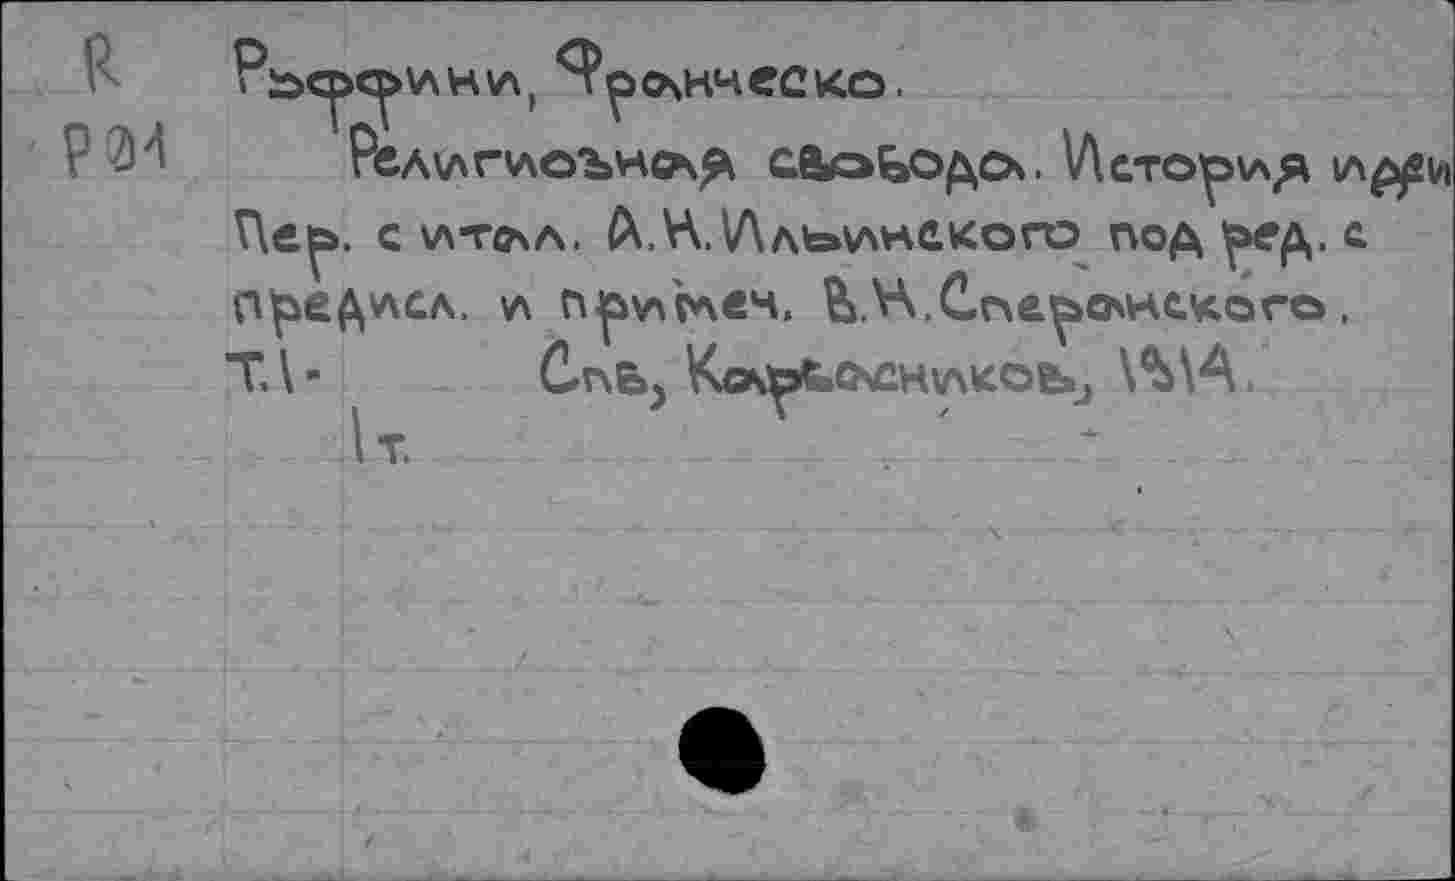 R Рьффини, Франческо.
P 21 Религиозная свобода. История идеи
Пер. с итал. А.Н.Ильинского под ред. с
предисл. и примеч. В.Н.Сперанского.
T.1. Спб, Карбасников, 1914.
1 т.